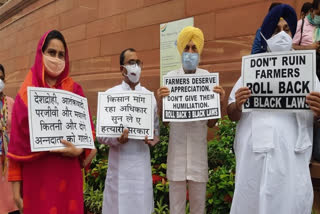 देशद्रोही, आतंकवादी
परजीवी और मवाली
कितनी और दोगे
अन्नदाता को गाली
किसान मांग
रहा अधिकार
सुन ले ए
हत्यारी सरकार
FARMERS DESERVE
APPRECIATION.
DON'T GIVE THEM
HUMILIATION.
ROLL BACK 3 BLACK LAWS
DON'T RUIN
FARMERS
ROLL BACK
3 BLACK LAWS